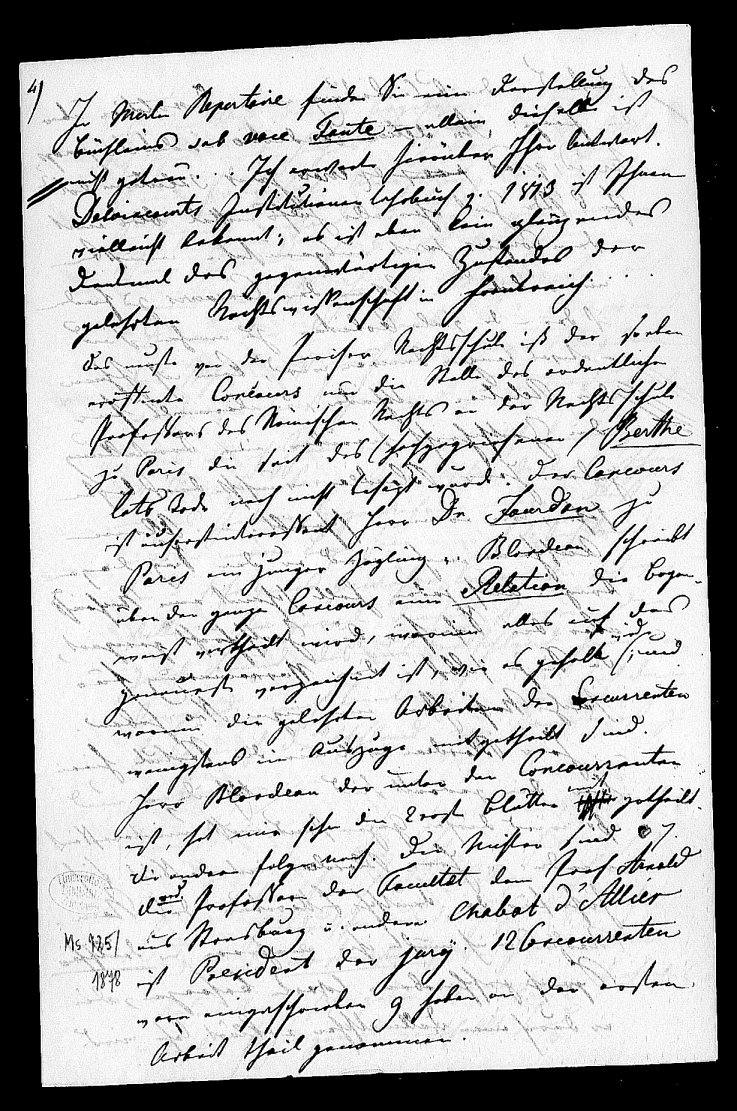 4)
In Merlin Repertoire finden Sie eine Darstellung des
Büchleins sub voce Faute – allein dieselbe ist
nicht getreu... Ich erwarte hierüber Ihre Antwort.
Delvincourts Institutionen Lehrbuch v. 1813 ist Ihnen
vielleicht bekannt; es ist eben kein glänzendes
Denkmal des gegenwärtigen Zustandes der
gelehrten Rechtswissenschaft in Frankreich....
Das neuste von der Pariser Rechtsschule ist der soeben
eröffnete Concours um die Stelle des ordentlichen
Professors des Römischen Rechts an der Rechtsschule
zu Paris die seit des Berthe
lots Tode noch nicht besetzt wurde. Der Concours
ist äusserst interessant Herr Dr Jourdan zu
Paris ein junger Zögling v. Blondeau schreibt
über den ganzen Concours eine Relation die bogen-
weise vertheilt wird, worinn alles auf das
genaueste verzeichnet ist, wie es gehalten wird, und
worinn die gelehrten Arbeiten der Concurrenten
wenigstens im Auszuge mitgetheilt sind.
Herr Blondeau der unter den Concourrenten
ist, hat mir schon die ersten Blätter mitgetheilt.
die andern folgen nach. Die Richter sind
die Professoren der Facultet dann Prof Arnold
aus Strasburg u. andere Chabot d'Allier
ist President der Jury. 12 Concourrenten
waren eingeschrieben 9 haben an der ersten
Arbeit theil genommen.
Ms. 925/
1878